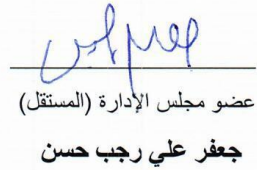 عضو مجلس الإدارة (المستقل)
جعفر علي رجب حسن